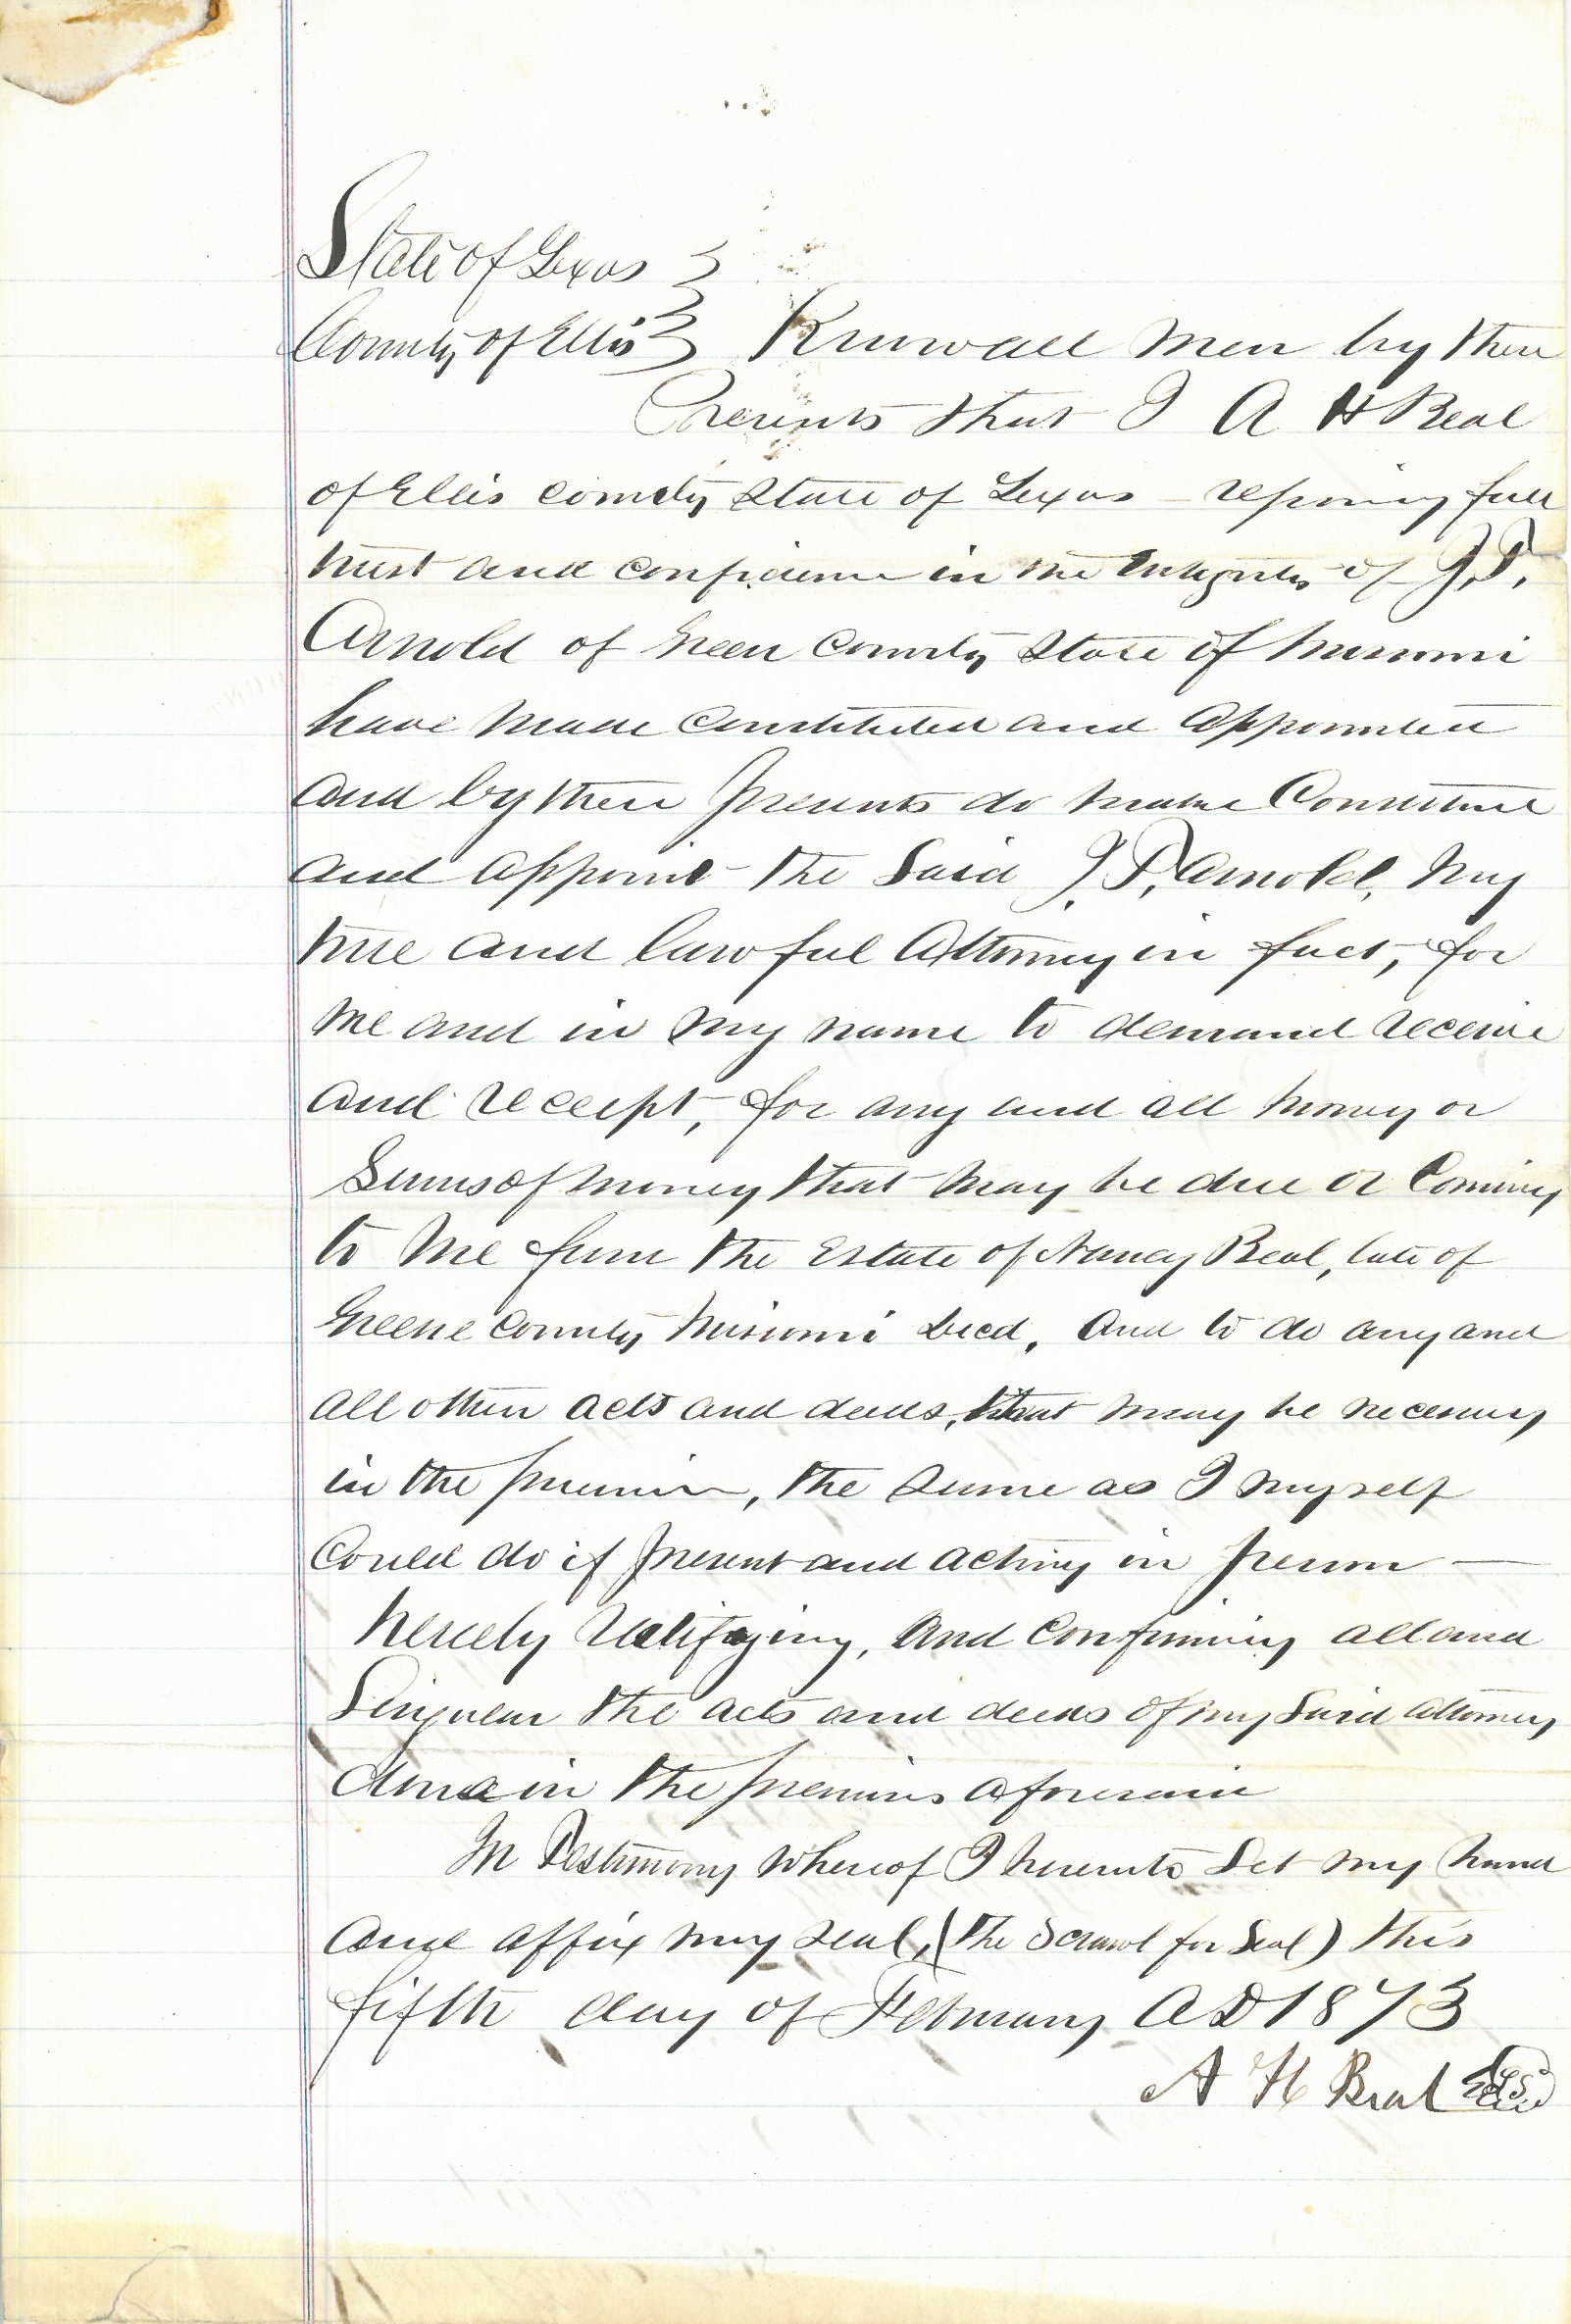 State of Texas
County of Ellis Know all men by these
Presents that I A H Beal
of Ellis county State of Texas – reposing full
trust and confidence in the integrity of J. P.
Arnold of Green County State of Missouri
have made constituted and appointed
and by these presents do make Constitute
and appoint the Said J. P. Arnold, my
true and lawful Attorney in fact, for
me and in my name to demand receive
and receipt, for any and all money or
Sums of money that may be due or Coming
to me from the Estate of Nancy Beal, late of
Greene County Missouri Decd, and to do any and
all other acts and deeds, that may be necessary
in the premises, the Same as I myself
Could do if present and acting in person —
hereby ratifying, and Confirming all and
Singular the acts and deeds of my Said Attorney
done in the premises aforesaid
In Testimony whereof I hereunto Set my hand
and affix my seal, (the Scrawl for Seal) this
fifth day of February AD 1873
A H Beal